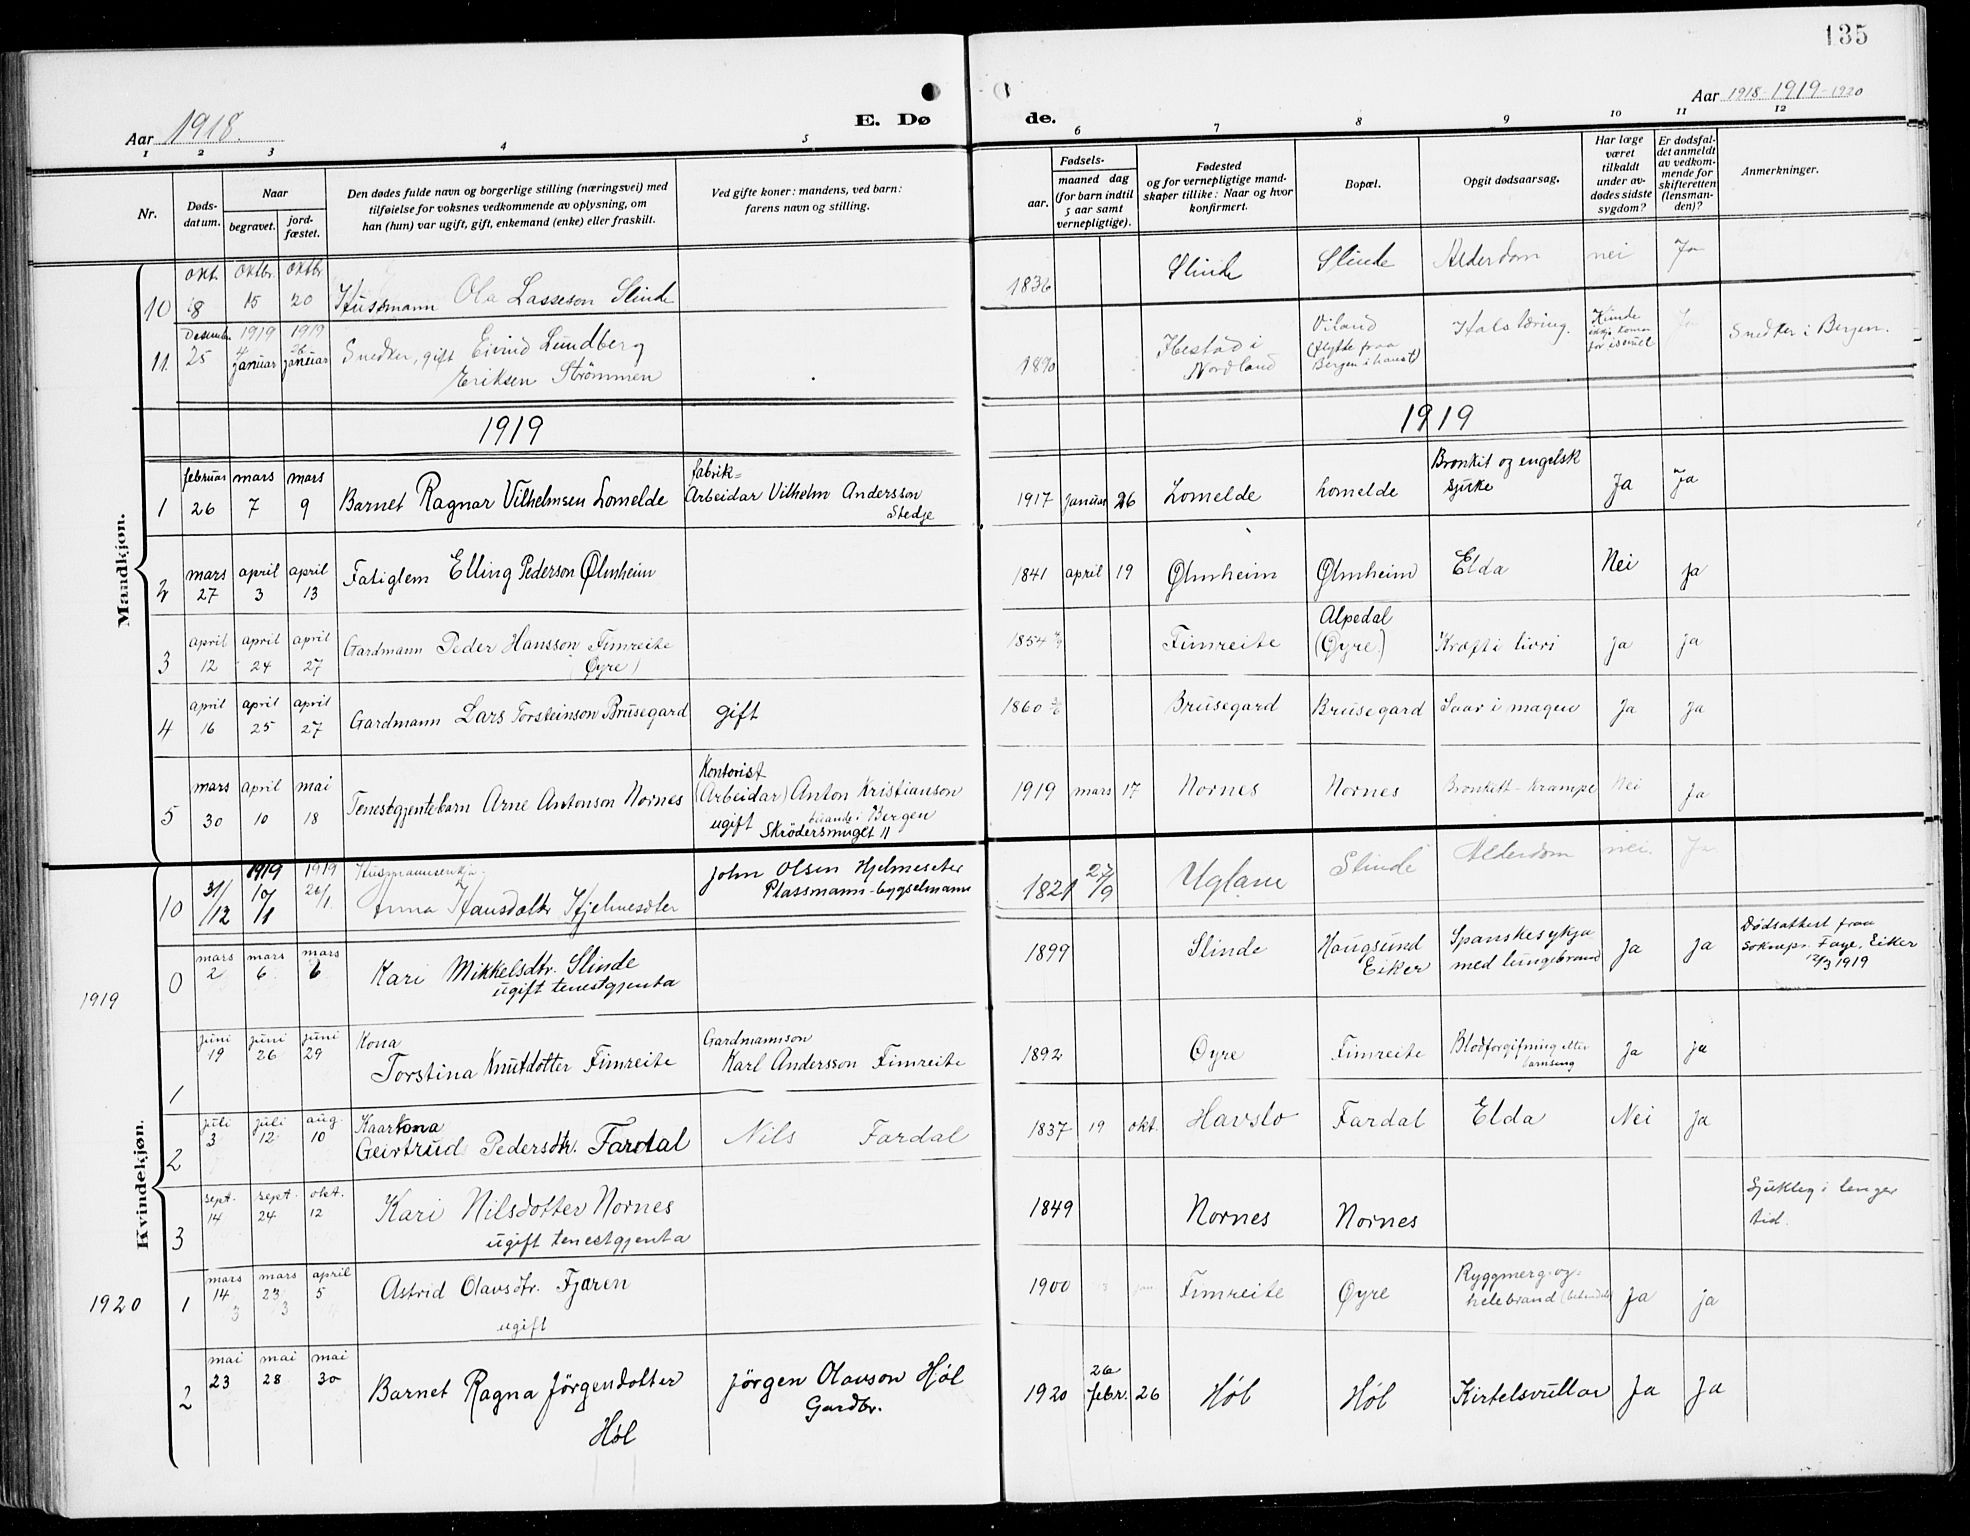 135
Aar 1918.
E. Døde.
Aar 1918-1919-1920
1 2 3 4 5 6 7 8 9 10 11 12
Nr.
Døds-
datum.
Naar
begravet.
jord-
fæstet.
Den dødes fulde navn og borgerlige stilling (næringsvei) med
tilføielse for voksnes vedkommende av oplysning, om
han (hun) var ugift, gift, enkemand (enke) eller fraskilt.
Ved gifte koner: mandens, ved barn:
farens navn og stilling.
Fødsels-
aar.
maaned dag
(for barn indtil
5 aar samt
vernepligtige).
Fødested
og for vernepligtige mand-
skaper tillike: Naar og hvor
konfirmert.
Bopæl.
Opgit dødsaarsag.
Har læge
været
tilkaldt
under av-
dødes sidste
sygdom?
Er dødsfal-
det anmeldt
av vedkom-
mende for
skifteretten
(lensman-
den)?
Anmerkninger.
Mandkjøn.
10 okt. 8 oktbr. 15 oktbr. 20 Husmann Ola Lasseson Slinde 1836 Slinde Slinde Alderdom nei Ja
11. Desember 25 1919 4 januar 1919 26 januar Snedker, gift Eivind Lundberg
Eriksen Strømmen
1890 Ibestad i
Nordland
Viland
(flytte fraa
Bergen i haust)
Halstæring.
Kunde
ikkje koma
for ismul
Ja
Snedker i Bergen.
1919
1919
1 februar 26 mars 7 mars 9 Barnet Ragnar Vilhelmsen Lomelde
fabrik=
Arbeidar Vilhelm Andersson
Stedje
1917 januar 26 Lomelde Lomelde
Bronkit og engelsk
sjuke
Ja Ja
2 mars 27 april 3 april 13 Fatiglem Elling Pederson Ølmheim 1841 april 19 Ølmheim Ølmheim Elda Nei ja
3 april 12 april 24 april 27 Gardmann Peder Hansson Fimreite
(Øyre)
1854 Fimreite
Alpedal
(Øyre)
Kræft i livri ja ja
4 april 16 april 25 april 27 Gardmann Lars Torsteinson Brusegard gift 1860 Brusegard Brusegard Saar i magen Ja Ja
5 mars 30 april 10 mai 18 Tenestgjentebarn Arne Antonson Nornes
Kontorist
(Arbeidar) Anton Kristianson
ugift buande i Bergen
Skrödersmuget 11
1919 mars 17 Nornes Nornes Bronkitt-krampe Nei Ja
Kvindekjøn.
10 31/12 1919 10/1 1919 26/1 Husmannsenkja
Anna Hansdotter Hjelmesæter
John Olsen Hjelmeseter
Plassmann-bygselmann
1821 27/9 Uglane Slinde Alderdom nei. Ja
1919
0 mars 2 mars 6 mars 6 Kari Mikkelsdtr. Slinde
ugift tenestgjenta
1899 Slinde
Hougsund
Eiker
Spanskesykja
med lungebrand
Ja Ja
Dødsattest fraa
soknepr. Faye, Eiker
12/3 1919
1 juni 19 juni 26 juni 29 Kona
Torstina Knutdotter Fimreite
Gardmannson
Karl Andersson Fimreite
1892 Øyre Fimreite
Blodforgifning etter
barnseng
Ja ja
2 juli 3 juli 12 aug. 10 Kaarkona
Geirtrud Pedersdtr. Fardal
Nils Fardal
1837 19 okt. Havslo Fardal Elda Nei Ja
3 sept. 14 sept. 24 okt. 12 Kari Nilsdotter Nornes
ugift tenestgjenta
1849 Nornes Nornes
Sjukleg i lenger
tid.
1920
1 mars 14 3 mars 23 3 april 5 Astrid Olavsdtr. Fjæren
ugift
1900 Fimreite Øyre
Ryggmerg-og-
helebrand
Ja ja
2 mai 23 mai 28 mai 30 Barnet Ragna Jörgendotter
Høl
Jörgen Olavson Høl
Gardbr.
1920 26 febr. 26 Høl Høl Kirtelsvullar Ja Ja